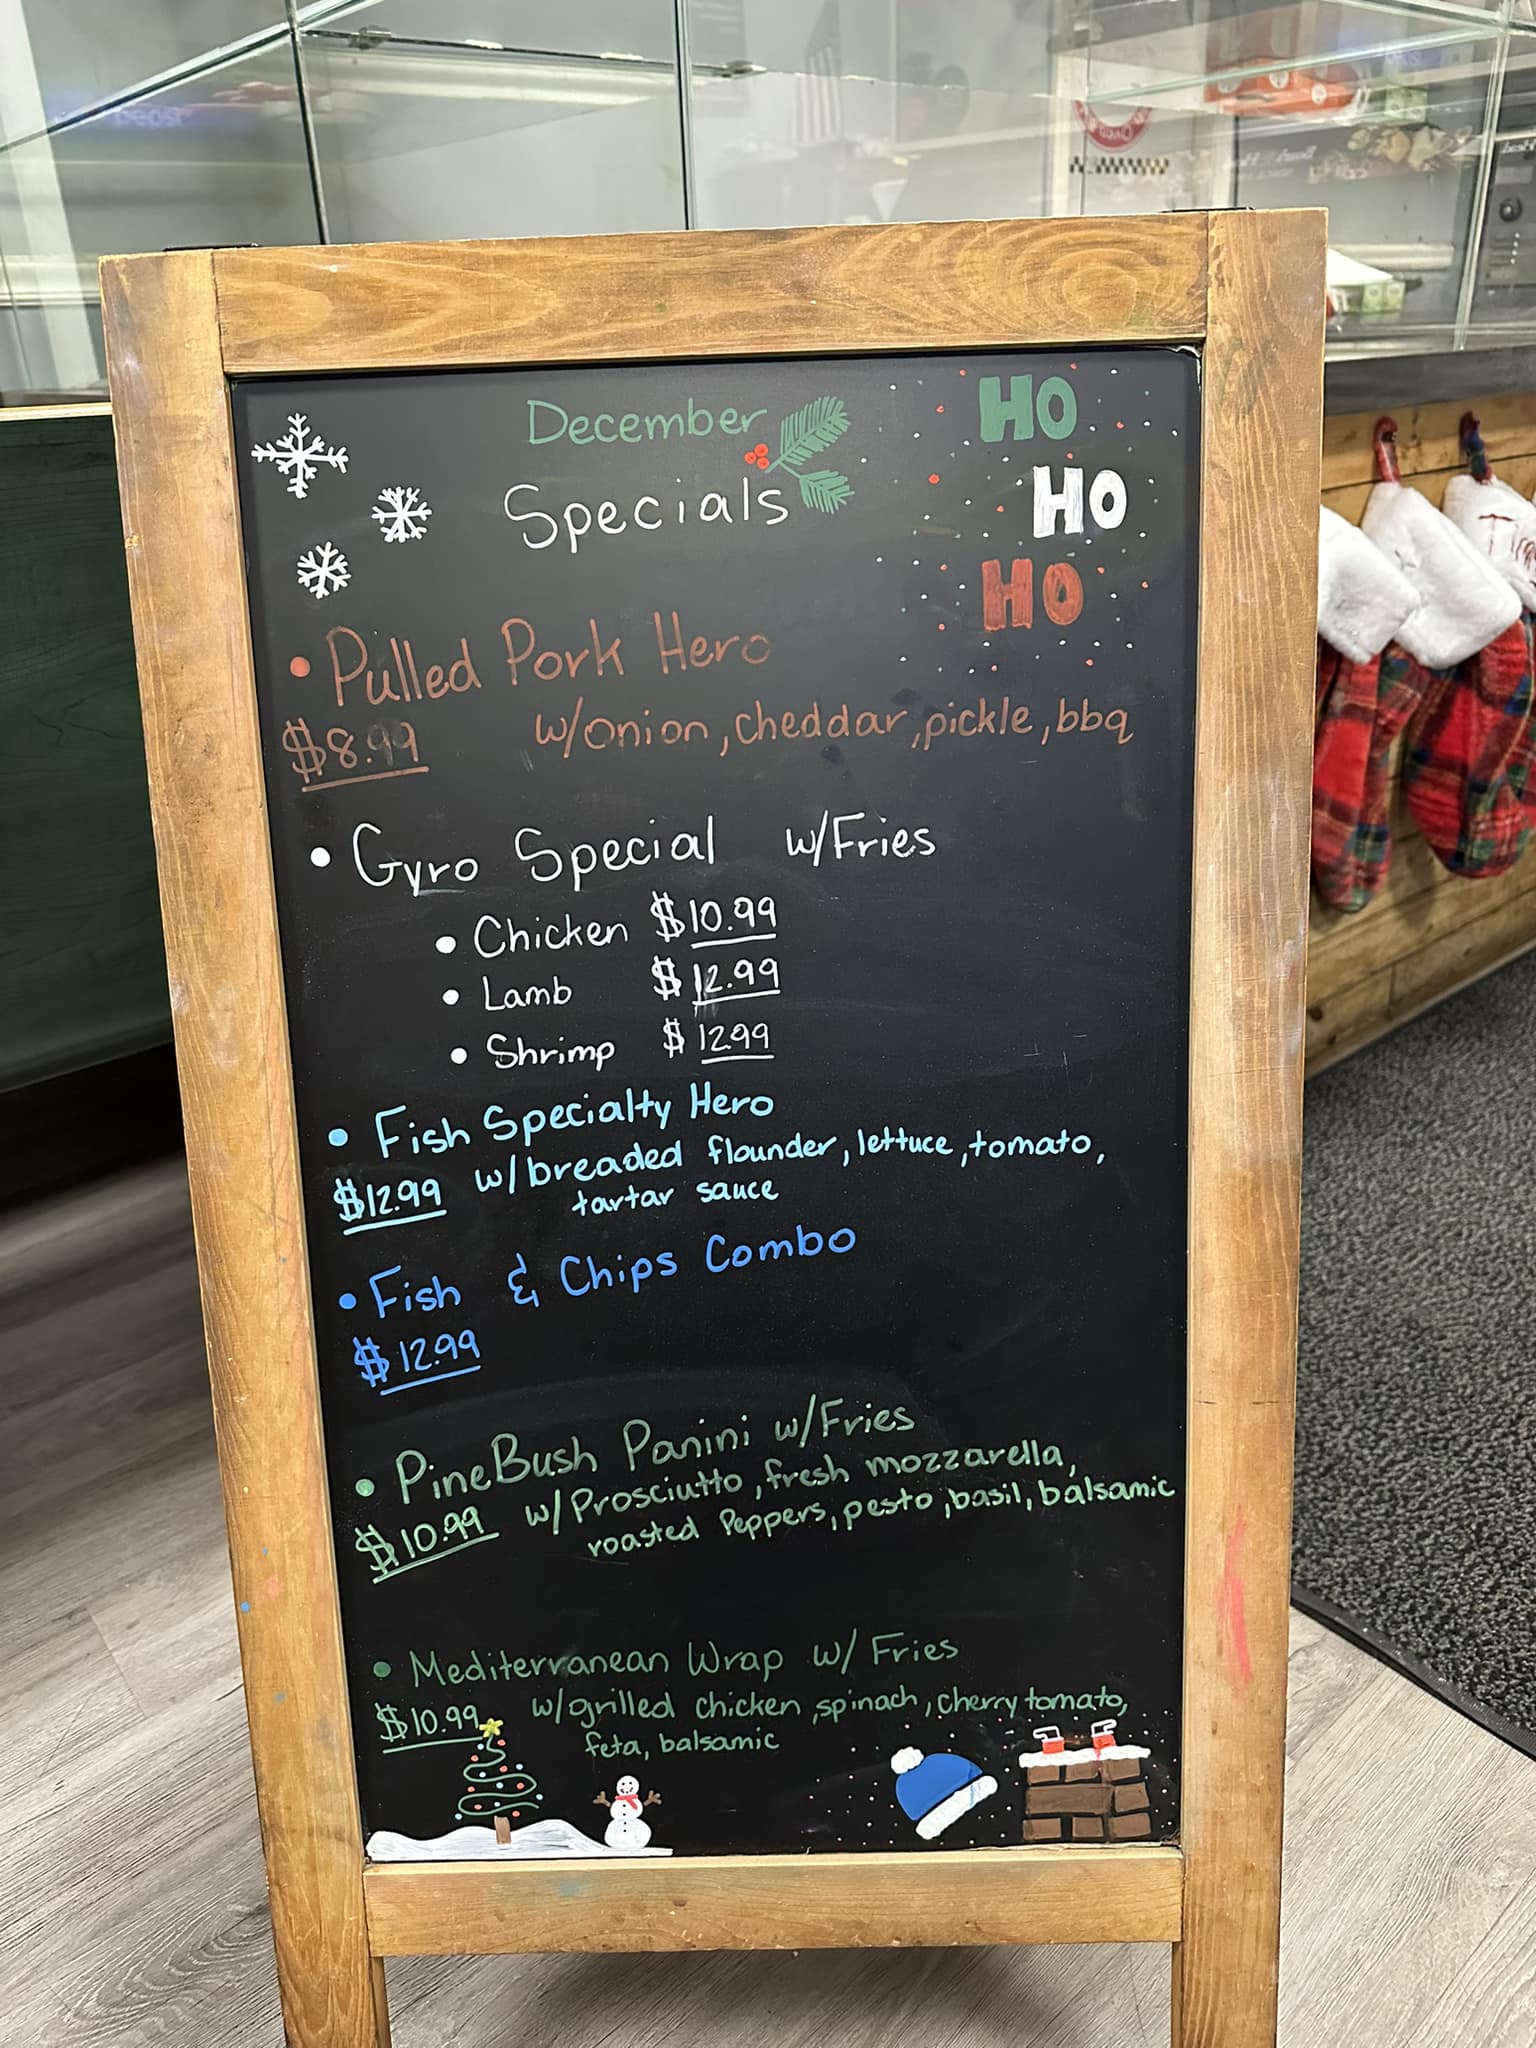 December
Specials
HO
HO
HO
• Pulled Pork Hero
$8.99 w/onion, cheddar, pickle, bbq
• Gyro Special w/Fries
• Chicken $10.99
• Lamb $12.99
• Shrimp $12.99
• Fish Specialty Hero
$12.99 w/breaded flounder, lettuce, tomato,
tartar sauce
• Fish & Chips Combo
$12.99
• PineBush Panini w/Fries
$10.99 w/Prosciutto, fresh mozzarella,
roasted Peppers, pesto, basil, balsamic
• Mediterranean Wrap w/ Fries
$10.99 w/grilled chicken, spinach, cherry tomato,
feta, balsamic